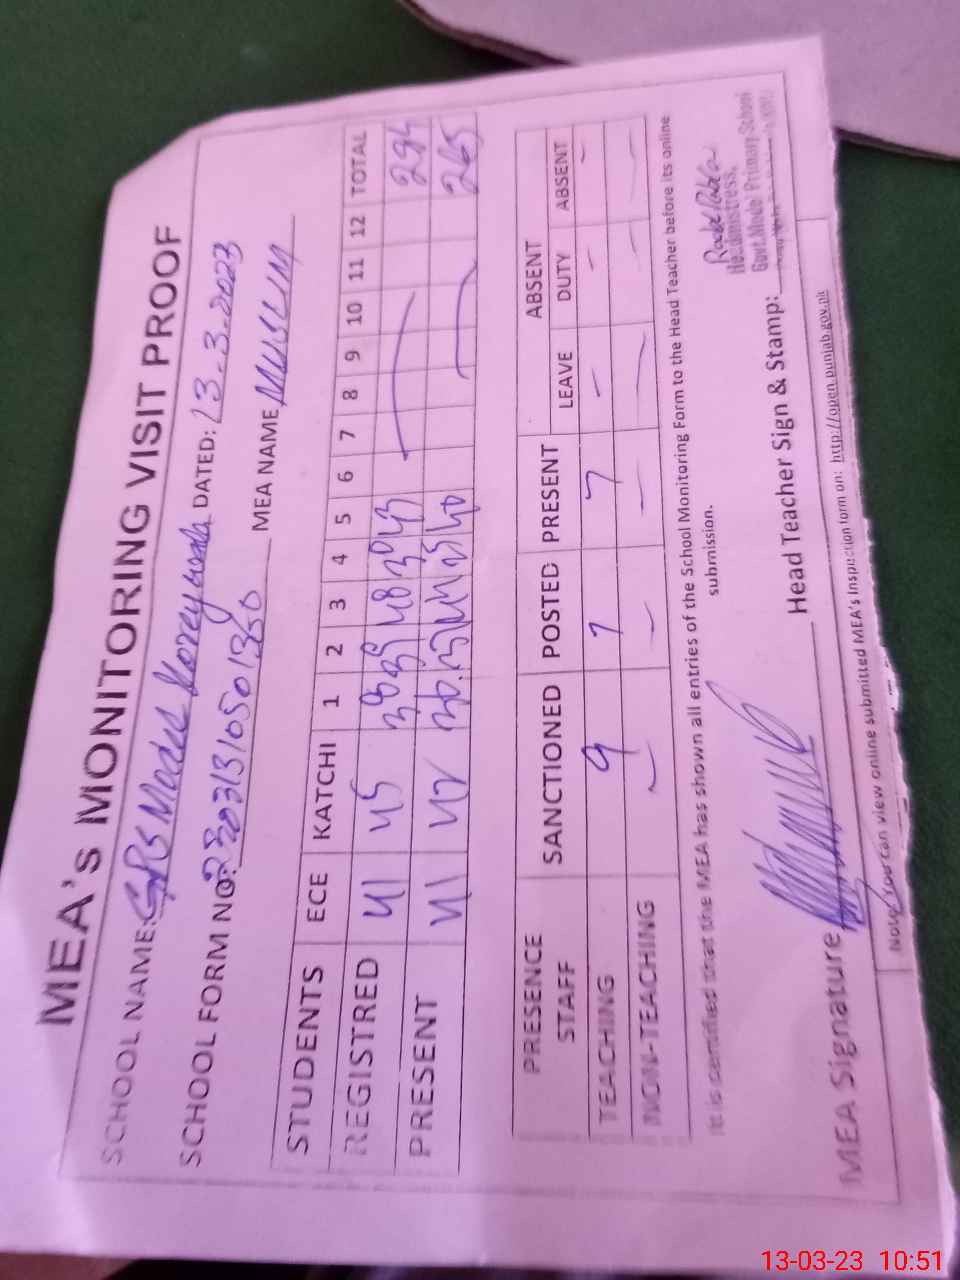 MEA's MONITORING VISIT PROOF
SCHOOL NAME: GPS Model DATED: 13.3.2023
SCHOOL FORM NO: MEA NAME MUSLIM
STUDENTS ECE KATCHI 1 2 3 4 5 6 7 8 9 10 11 12 TOTAL
REGISTRED 41 45 39 48 39 43 294
PRESENT 41 42 265
PRESENCE STAFF SANCTIONED POSTED PRESENT ABSENT
LEAVE DUTY ABSENT
TEACHING 9 7 7 - - -
NON-TEACHING - - - - - -
It is certified that the MEA has shown all entries of the School Monitoring Form to the Head Teacher before its online
submission.
Headmistress,
Govt.Model Primary School
MEA Signature Head Teacher Sign & Stamp:
Note: You can view online submitted MEA's Inspection form on: http://open.punjab.gov.pk
13-03-23 10:51